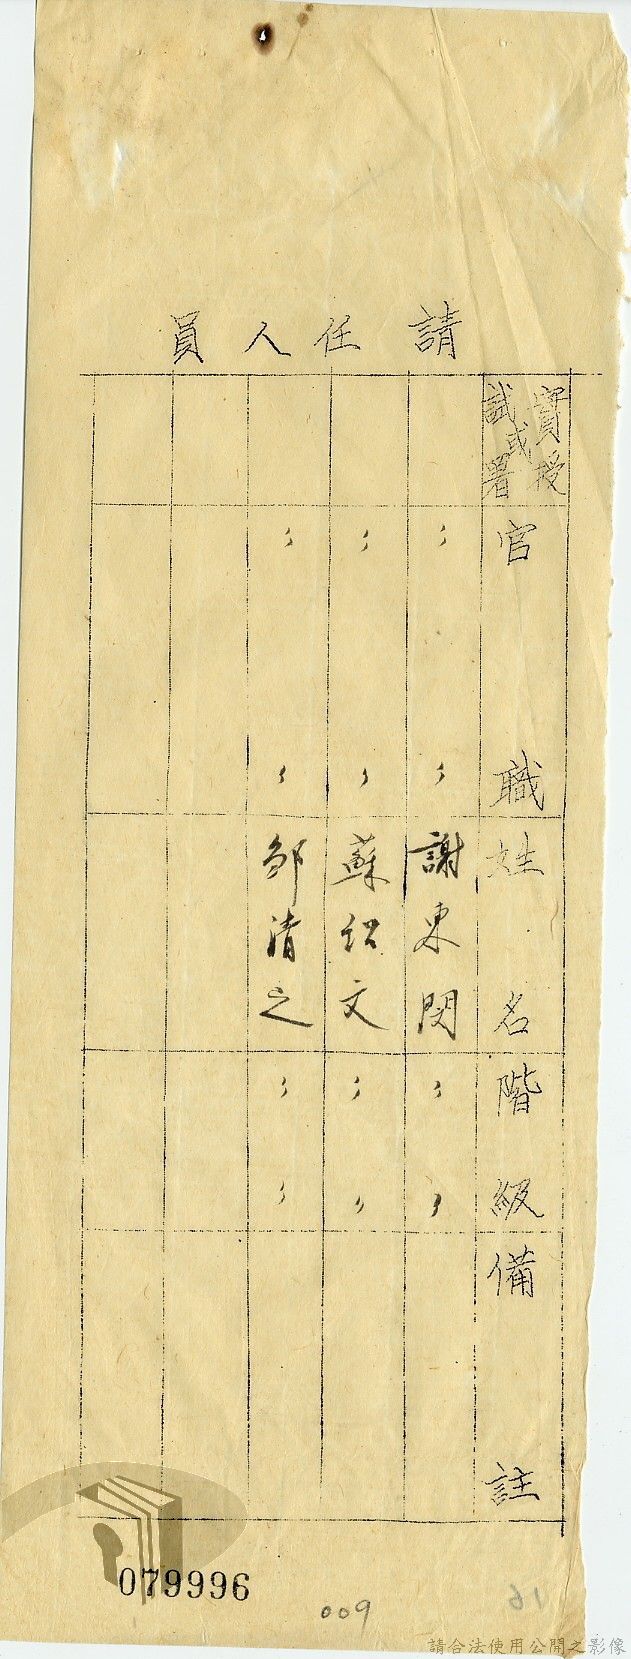 請任人員
實授
或
試署
官職
姓名
階級
備註
〃 〃 謝東閔 〃 〃
〃 〃 蘇紹文 〃 〃
〃 〃 鄒清之 〃 〃
079996
009
61
請合法使用公開之影像